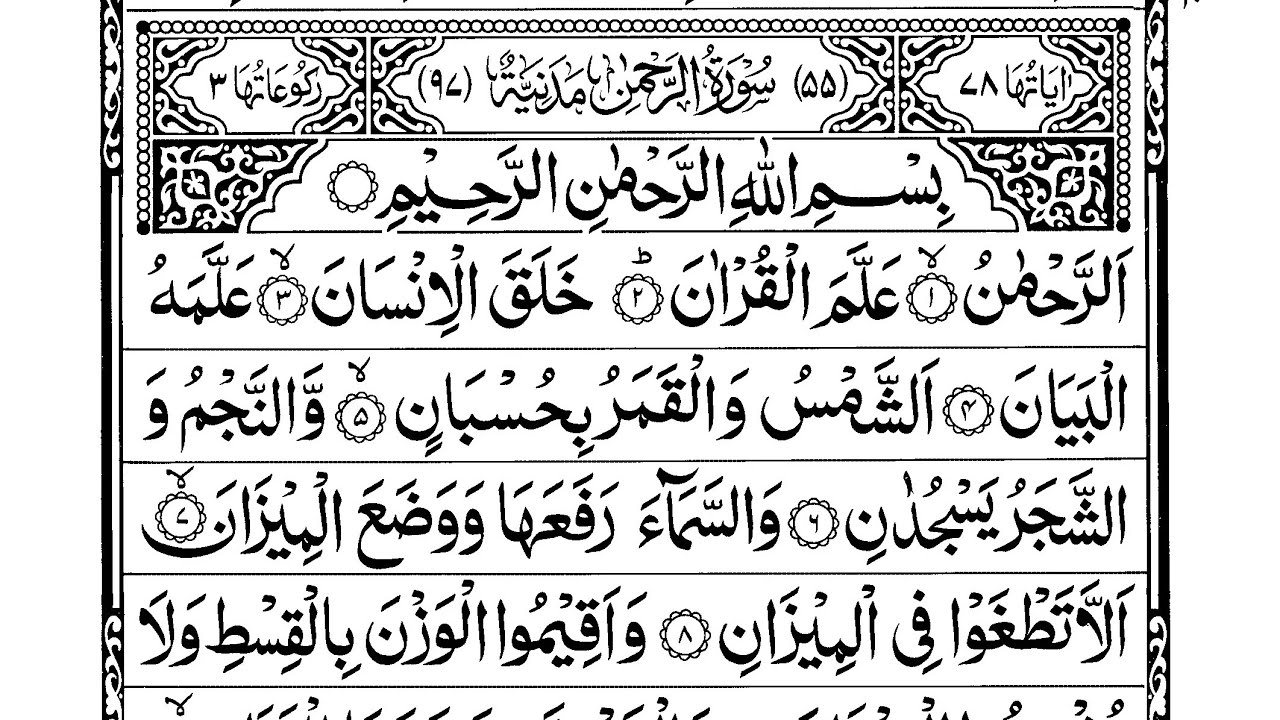 اٰيَاتُهَا ٧٨ (٥٥) سُوْرَةُ الرَّحْمٰنِ مَدَنِيَّةٌ (٩٧) رُكُوْعَاتُهَا ٣
بِسْمِ اللّٰهِ الرَّحْمٰنِ الرَّحِيْمِ
اَلرَّحْمٰنُ ۙ﴿١﴾ عَلَّمَ الْقُرْاٰنَ ؕ﴿٢﴾ خَلَقَ الْاِنْسَانَ ۙ﴿٣﴾ عَلَّمَهُ
الْبَيَانَ ﴿۴﴾ اَلشَّمْسُ وَالْقَمَرُ بِحُسْبَانٍ ۙ﴿۵﴾ وَّالنَّجْمُ وَ
الشَّجَرُ يَسْجُدٰنِ ﴿۶﴾ وَالسَّمَآءَ رَفَعَهَا وَوَضَعَ الْمِيْزَانَ ۙ﴿٧﴾
اَلَّا تَطْغَوْا فِى الْمِيْزَانِ ﴿٨﴾ وَاَقِيْمُوا الْوَزْنَ بِالْقِسْطِ وَلَا